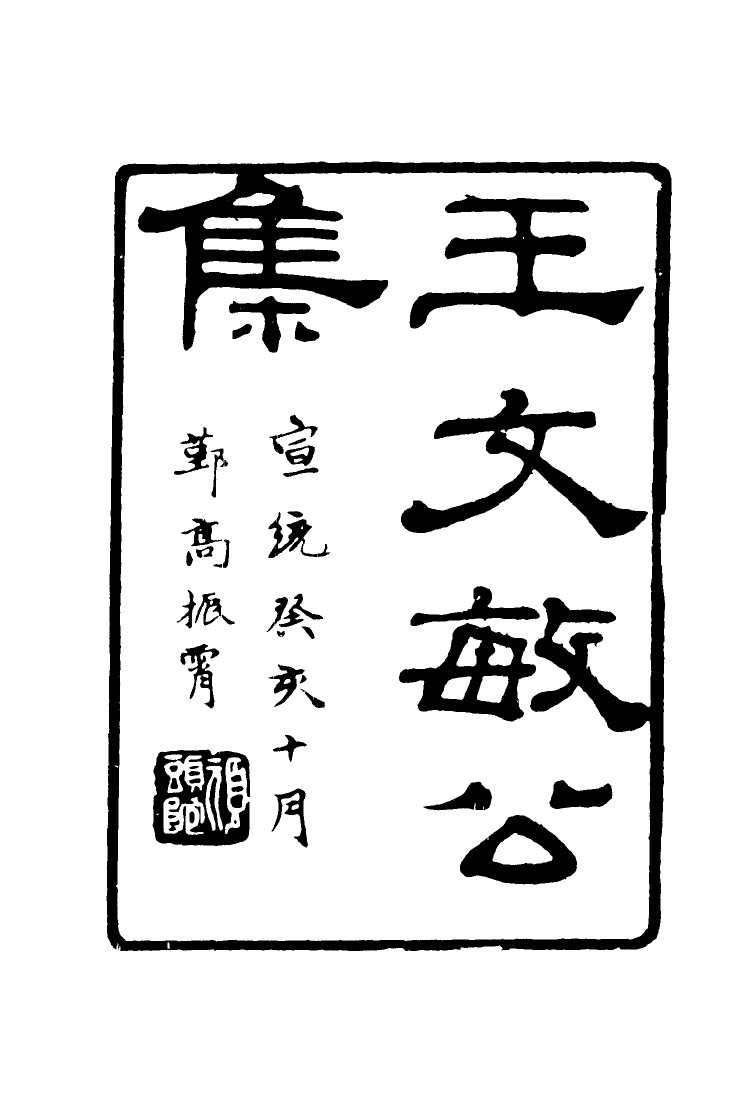 王文敏公
集
宣統癸亥十月
鄞高振霄
頭陀